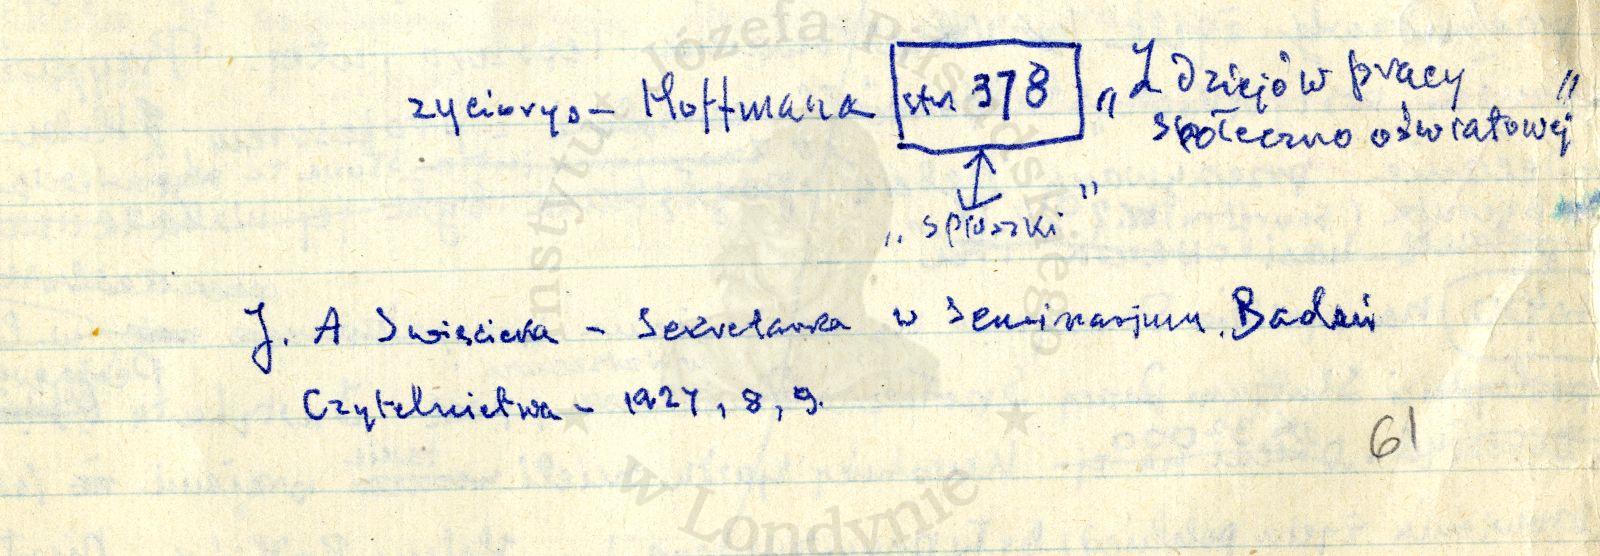 życiorys – Hoffmana str 378 „Z dziejów pracy
społeczno oświatowej"
„spiszki"
J. A Swięcicka – Sekretarka w Seminarjum. Badań
Czytelnictwa – 1927, 8, 9.
61
Instytut Józefa Piłsudskiego
w Londynie